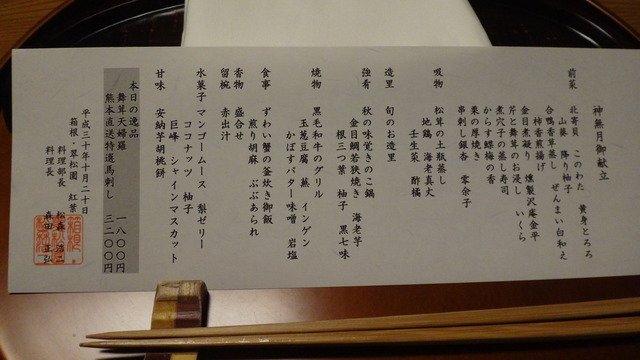 神無月御献立
前菜 北寄貝 このわた 黄身とろろ
山葵 降り柚子 ぜんまい白和え
合鴨香草蒸し
柿香煎揚げ
金目煮凝り 燻製沢庵金平
芹と舞茸のお浸し いくら
煮穴子の蒸し寿司
からす鰈梅の香
栗の厚焼き
串刺し銀杏 零余子
吸物 松茸の土瓶蒸し
地鶏 海老真丈
壬生菜 酢橘
造里 旬のお造里
強肴 秋の味覚きのこ鍋
金目鯛若狭焼き 海老芋
根三つ葉 柚子 黒七味
焼物 黒毛和牛のグリル
玉葱豆腐 蕪 インゲン
かぼすバター味噌 岩塩
食事 ずわい蟹の釜炊き御飯
煎り胡麻 ぶぶあられ
香物 盛合せ
留椀 赤出汁
水菓子 マンゴームース 梨ゼリー
ココナッツ 柚子
巨峰 シャインマスカット
甘味 安納芋胡桃餅
本日の逸品
舞茸天婦羅 一八〇〇円
熊本直送特選馬刺し 三二〇〇円
平成三十年十月二十日
箱根・翠松園 紅葉
料理部長 松森 浩二
料理長 森田 正弘